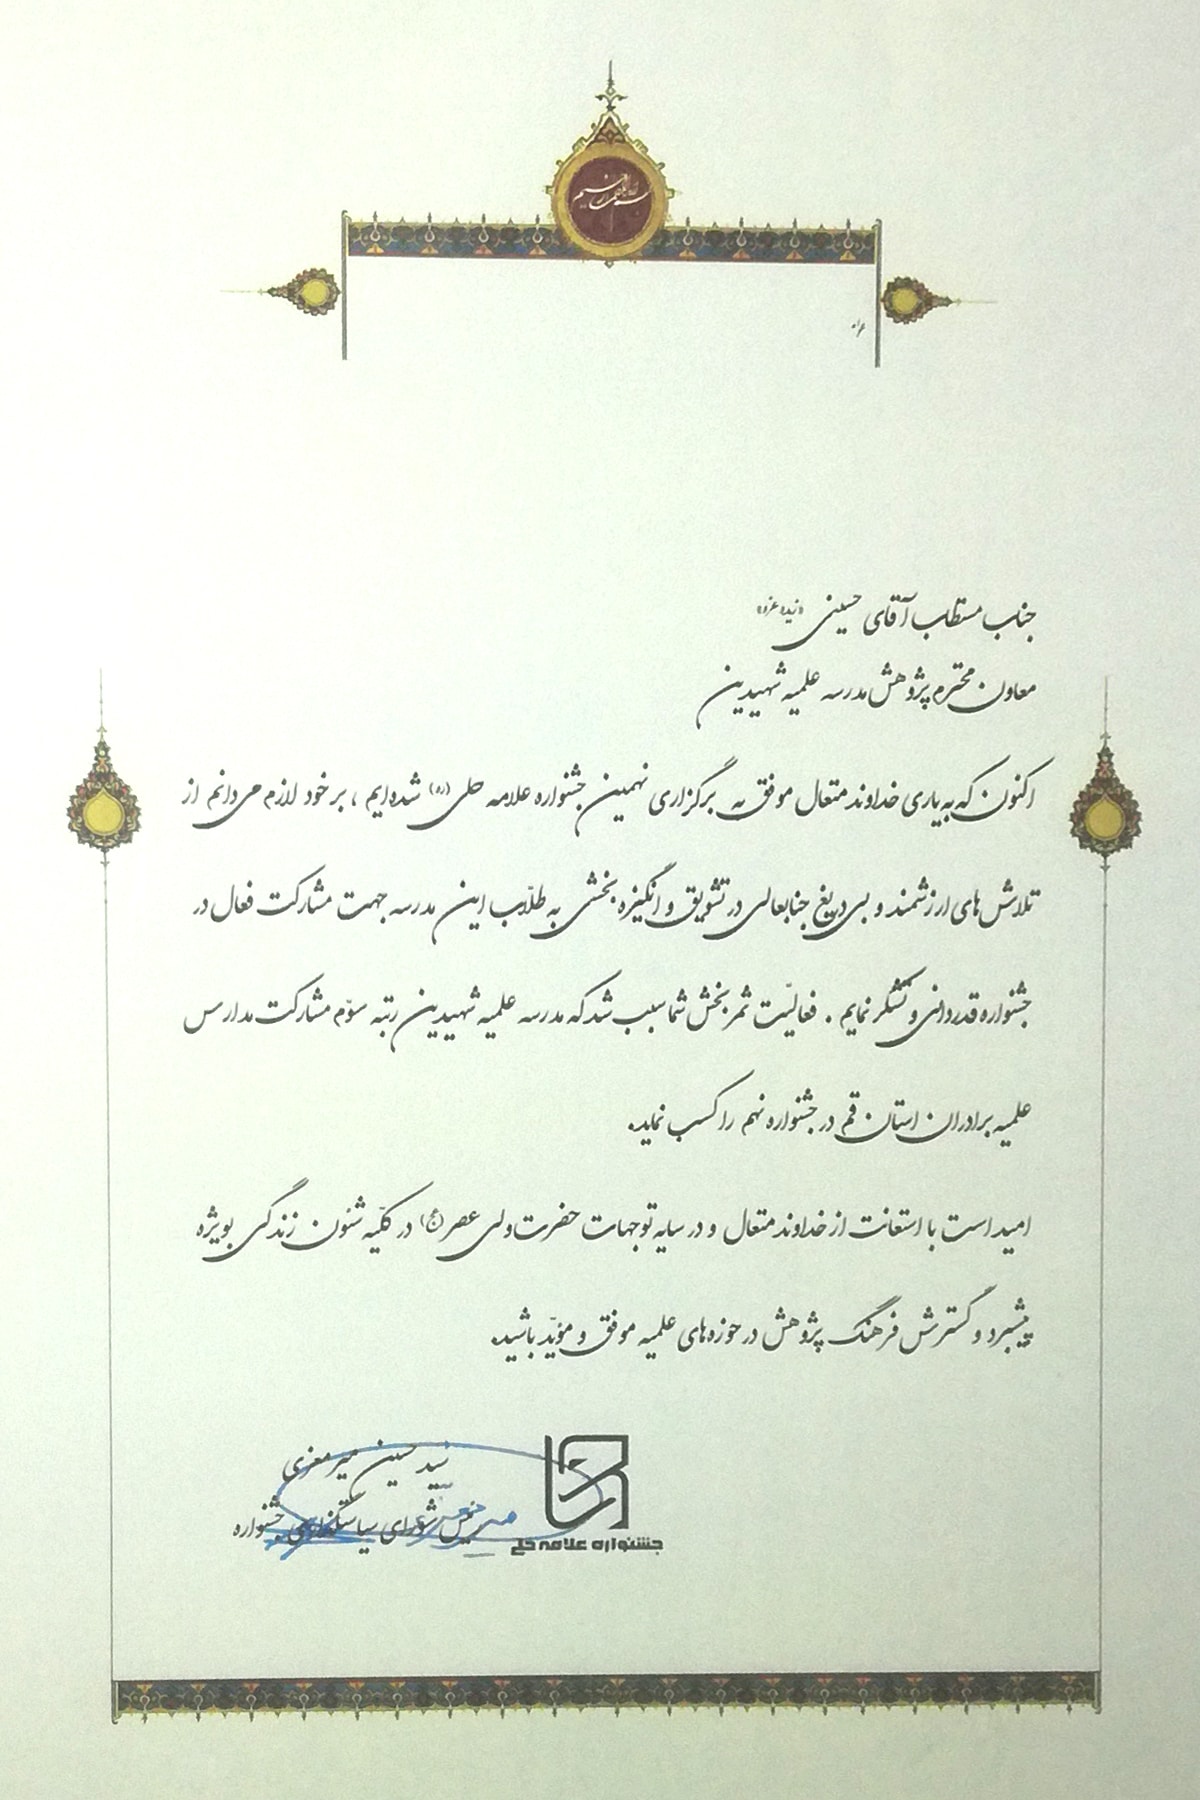 بسم الله الرحمن الرحیم
جناب مستطاب آقای حسینی «زیده عزه»
معاون محترم پژوهش مدرسه علمیه شهیدین
اکنون که به یاری خداوند متعال موفق به برگزاری نهمین جشنواره علامه حلی (ره) شده‌ایم ، بر خود لازم می‌دانم از
تلاش‌های ارزشمند و بی‌دریغ جنابعالی در تشویق و انگیزه‌بخشی به طلّاب این مدرسه جهت مشارکت فعال در
جشنواره قدردانی و تشکر نمایم . فعالیّت ثمربخش شما سبب شد که مدرسه علمیه شهیدین رتبه سوّم مشارکت مدارس
علمیه برادران استان قم در جشنواره نهم را کسب نماید.
امید است با استعانت از خداوند متعال و در سایه توجهات حضرت ولی عصر (عج) در کلیّه شئون زندگی بویژه
پیشبرد و گسترش فرهنگ پژوهش در حوزه‌های علمیه موفق و مؤیّد باشید.
سیّد حسین میرمعزی
رئیس شورای سیاستگذاری جشنواره
جشنواره علامه حلی